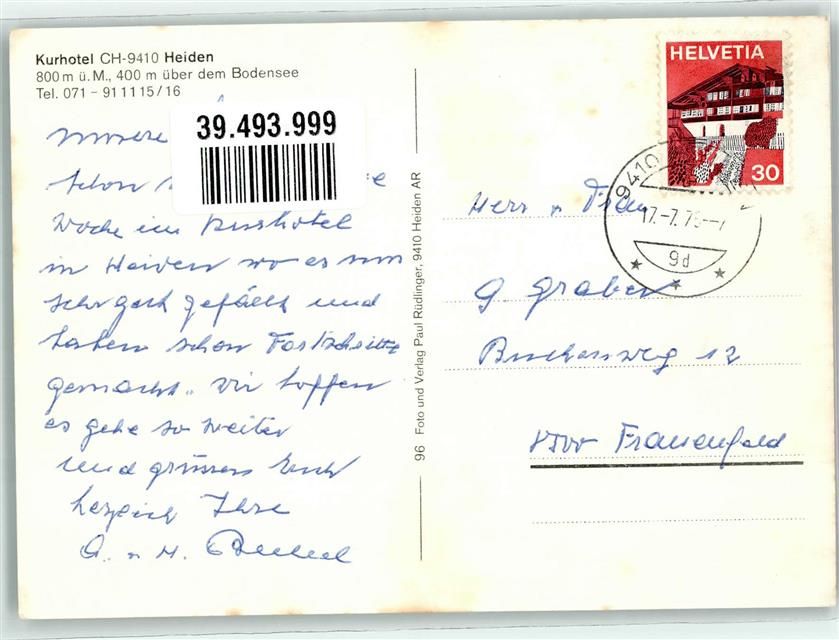 Kurhotel CH-9410 Heiden
800 m ü. M., 400 m über dem Bodensee
Tel. 071 - 91 11 15 / 16
39.493.999
Unsere
schon
Woche im Kurhotel
in Heiden wo es uns
sehr gut gefällt und
haben schon Fortschritte
gemacht. Wir hoffen
es gehe so weiter
und grüssen Euch
herzlich Ihre
A. u. H.
96 Foto und Verlag Paul Rüdlinger, 9410 Heiden AR
HELVETIA
30
9410
17.-7.7
9d
Herr u. Frau
G Graber
Buchenweg 12
8500 Frauenfeld